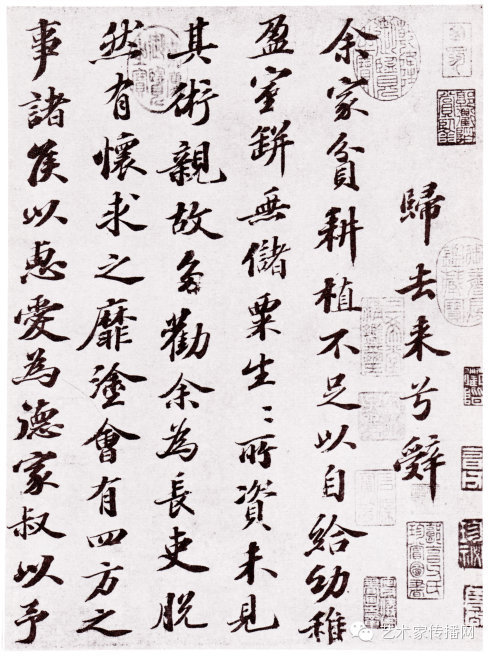 歸去来兮辭
余家貧耕植不足以自給幼稚
盈室缾無儲粟生〻所資未見
其術親故多勸余為長吏脱
然有懷求之靡塗會有四方之
事諸侯以惠愛為德家叔以予
艺术家传播网